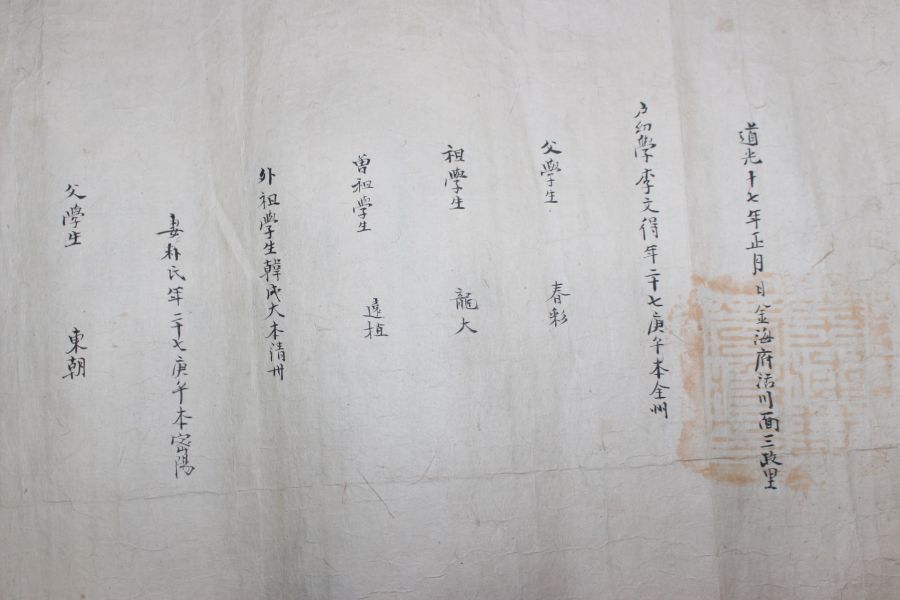 道光十七年正月 日金海府活川面三政里
戶幼學李文得年二十七庚午本全州
父學生 春彩
祖學生 龍大
曾祖學生 遠植
外祖學生韓成大本淸州
妻朴氏年二十七庚午本密陽
父學生 東朝